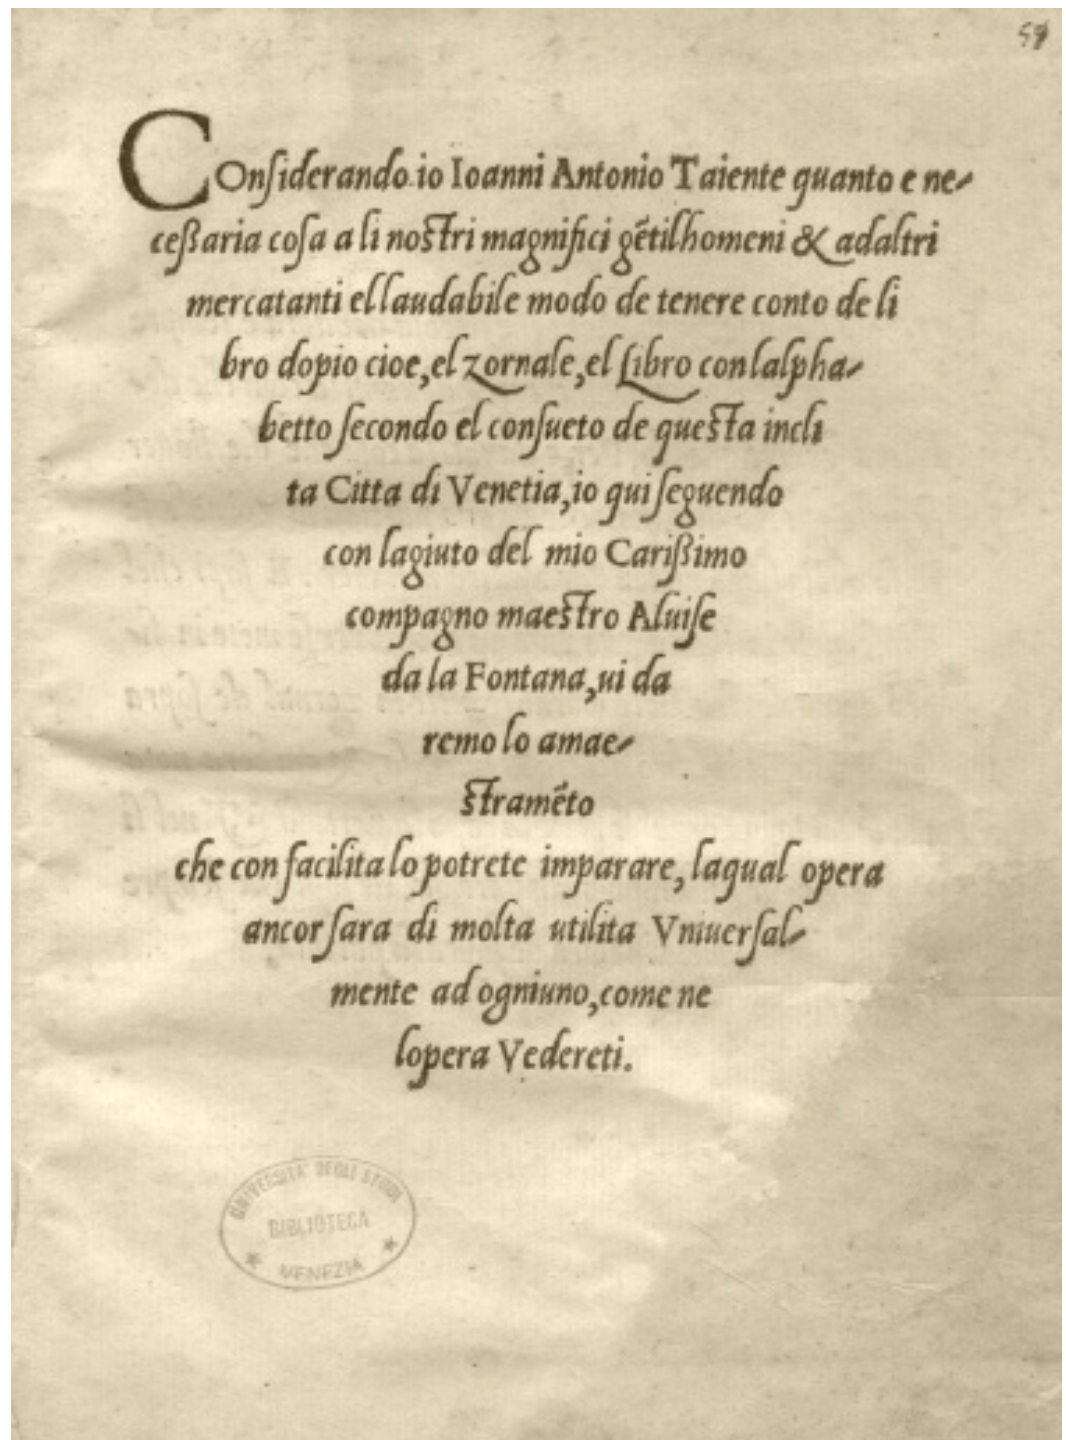 59
COnſiderando io Ioanni Antonio Taiente quanto e ne-
ceßaria coſa a li noſtri magnifici gẽtilhomeni & adaltri
mercatanti el laudabile modo de tenere conto de li
bro dopio cioe, el zornale, el Libro con lalpha-
betto ſecondo el conſueto de queſta incli
ta Citta di Venetia, io qui ſeguendo
con lagiuto del mio Carißimo
compagno maeſtro Aluiſe
da la Fontana, ui da
remo lo amae-
ſtramẽto
che con facilita lo potrete imparare, laqual opera
ancor ſara di molta utilita Vniuerſal-
mente ad ogniuno, come ne
lopera Vedereti.
UNIVERSITA' DEGLI STUDI
BIBLIOTECA
* VENEZIA *